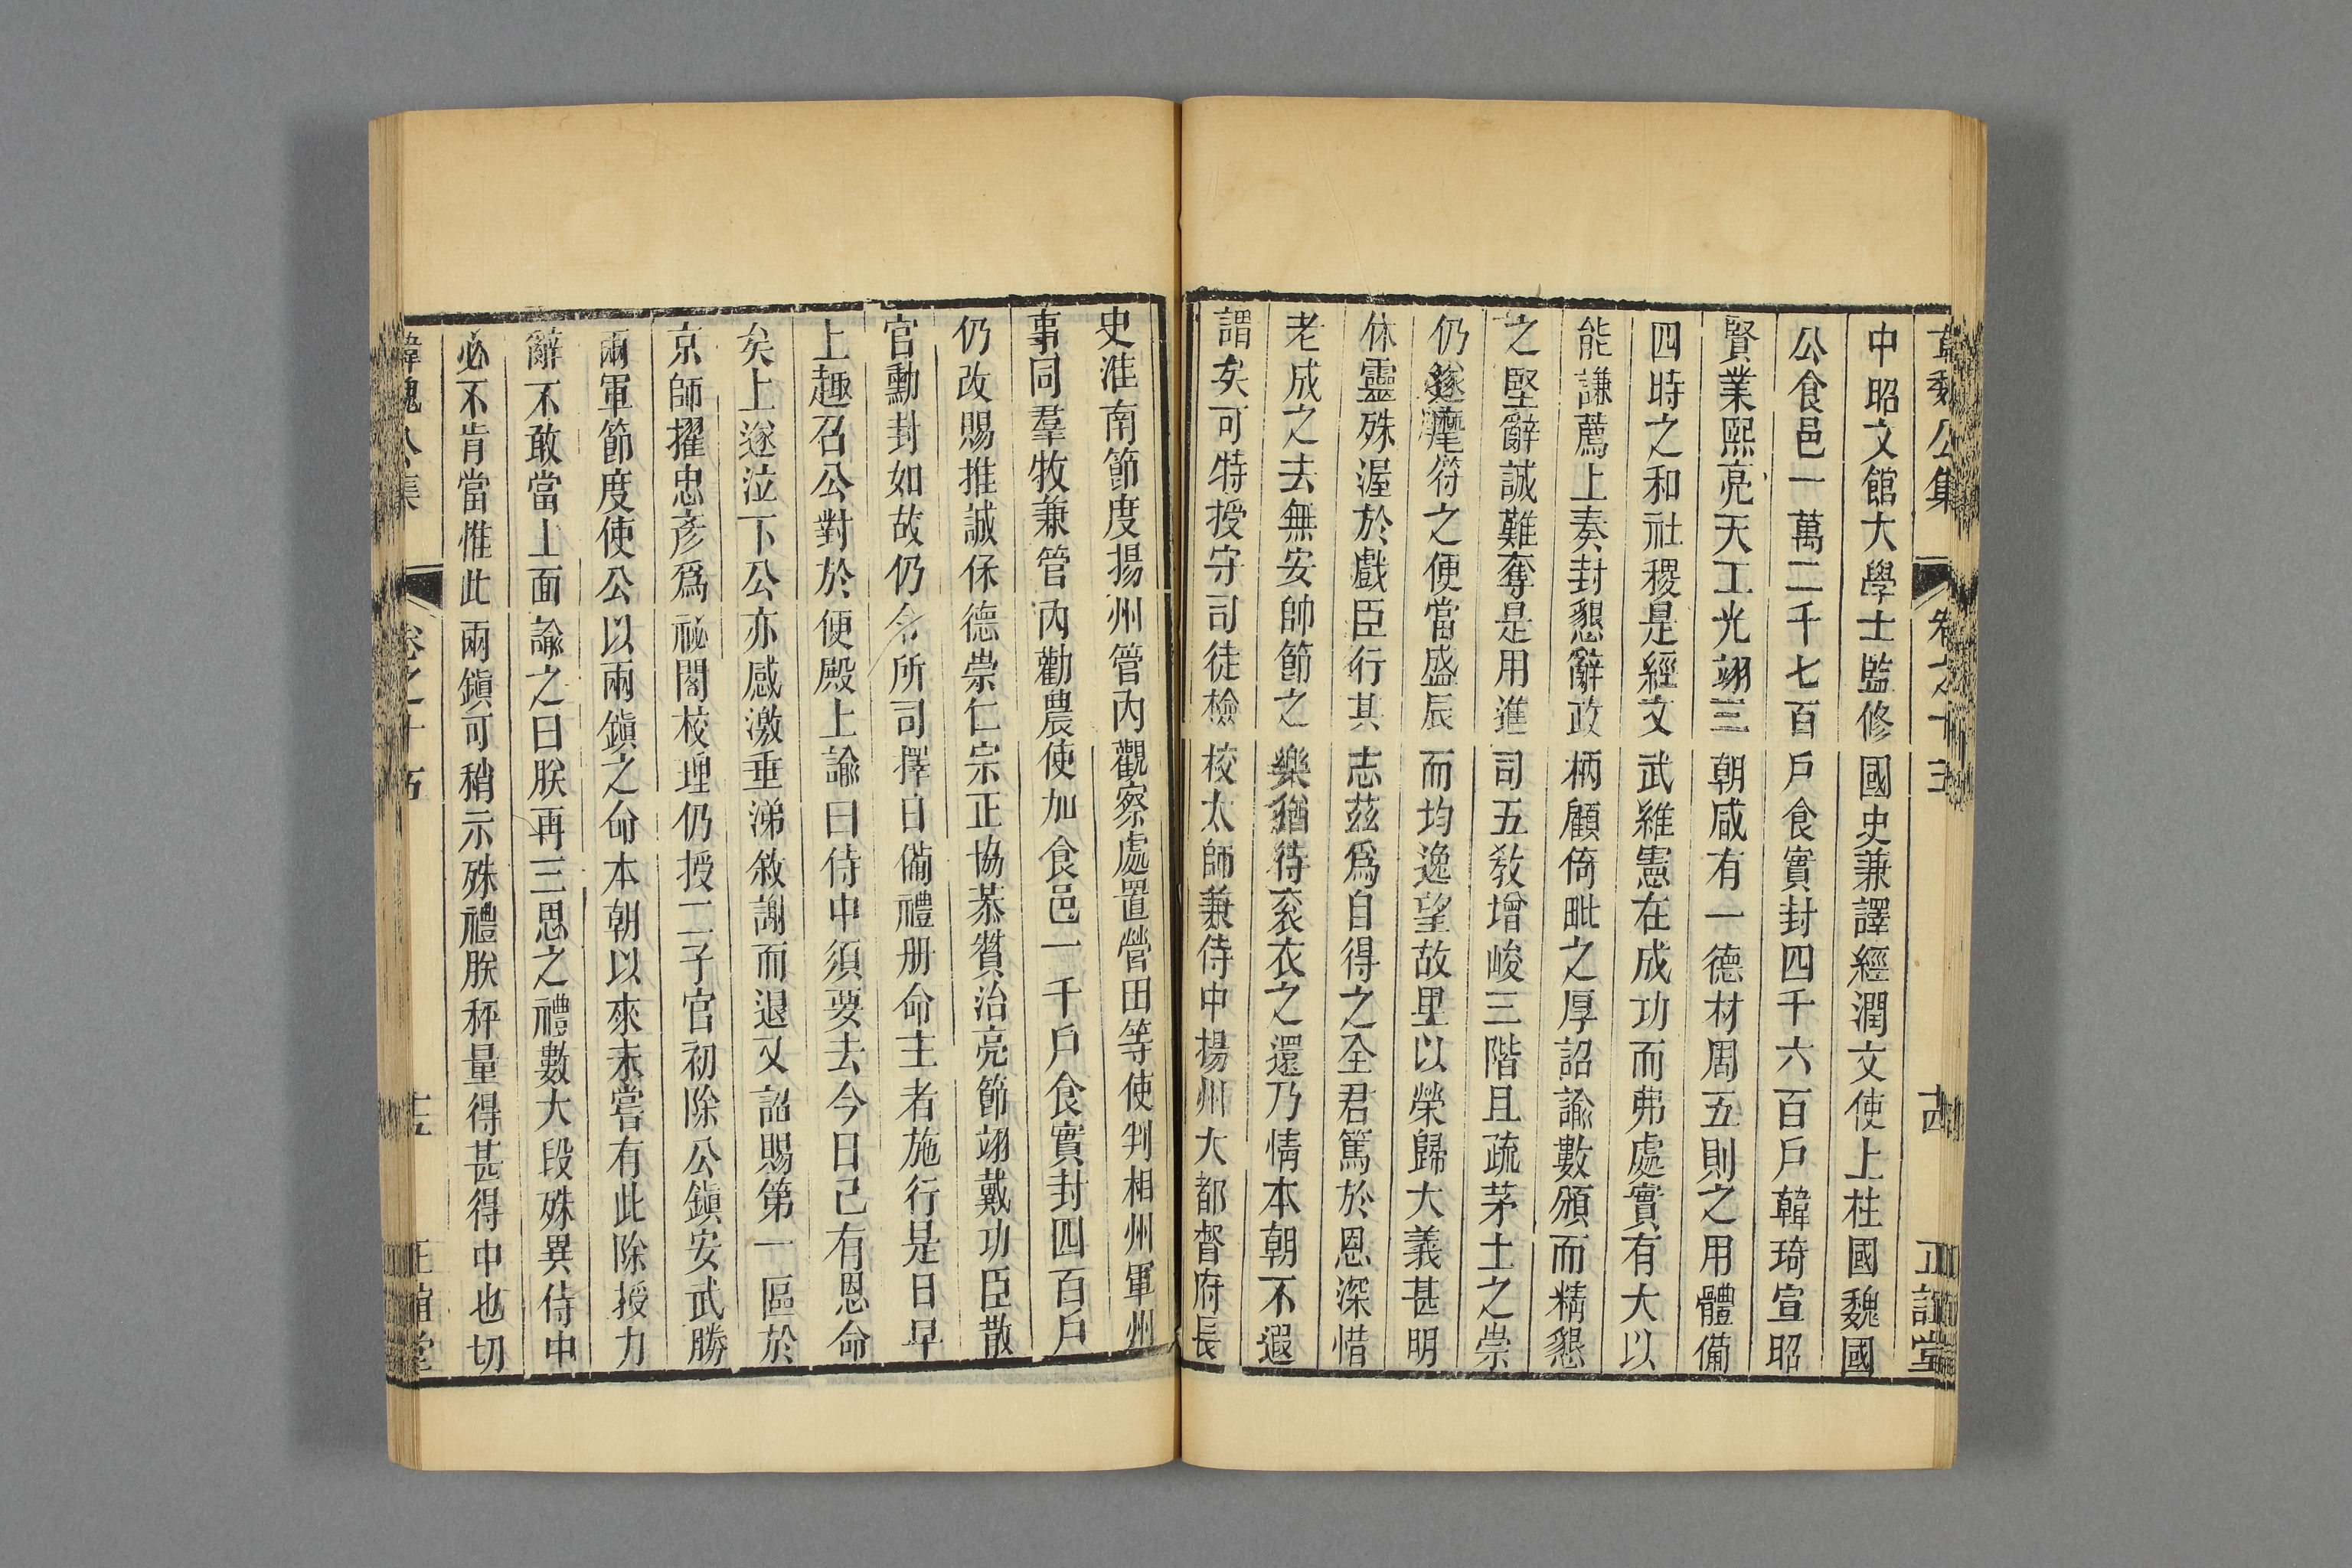 韓魏公集 卷之十五 十四 正誼堂
中昭文館大學士監修國史兼譯經潤文使上柱國魏國
公食邑一萬二千七百戶食實封四千六百戶韓琦宣昭
賢業熙亮天工光翊三朝咸有一德材周五則之用體備
四時之和社稷是經文武維憲在成功而弗處實有大以
能謙薦上奏封懇辭政柄顧倚毗之厚詔諭數頒而精懇
之堅辭誠難奪是用進司五教增峻三階且疏茅土之崇
仍遂麾符之便當盛辰而均逸望故里以榮歸大義甚明
休靈殊渥於戲臣行其志茲爲自得之全君篤於恩深惜
老成之去無安帥節之樂猶待衮衣之還乃情本朝不遐
謂矣可特授守司徒檢校太師兼侍中揚州大都督府長
史淮南節度揚州管內觀察處置營田等使判相州軍州
事同羣牧兼管內勸農使加食邑一千戶食實封四百戶
仍改賜推誠保德崇仁宗正協恭贊治亮節翊戴功臣散
官勳封如故仍令所司擇日備禮册命主者施行是日早
上趣召公對於便殿上諭曰侍中須要去今日已有恩命
矣上遂泣下公亦感激垂涕敘謝而退又詔賜第一區於
京師擢忠彥爲祕閣校理仍授二子官初除公鎮安武勝
兩軍節度使公以兩鎮之命本朝以來未嘗有此除授力
辭不敢當上面諭之曰朕再三思之禮數大段殊異侍中
必不肯當惟此兩鎮可稍示殊禮朕秤量得甚得中也切
韓魏公集 卷之十五 十五 正誼堂